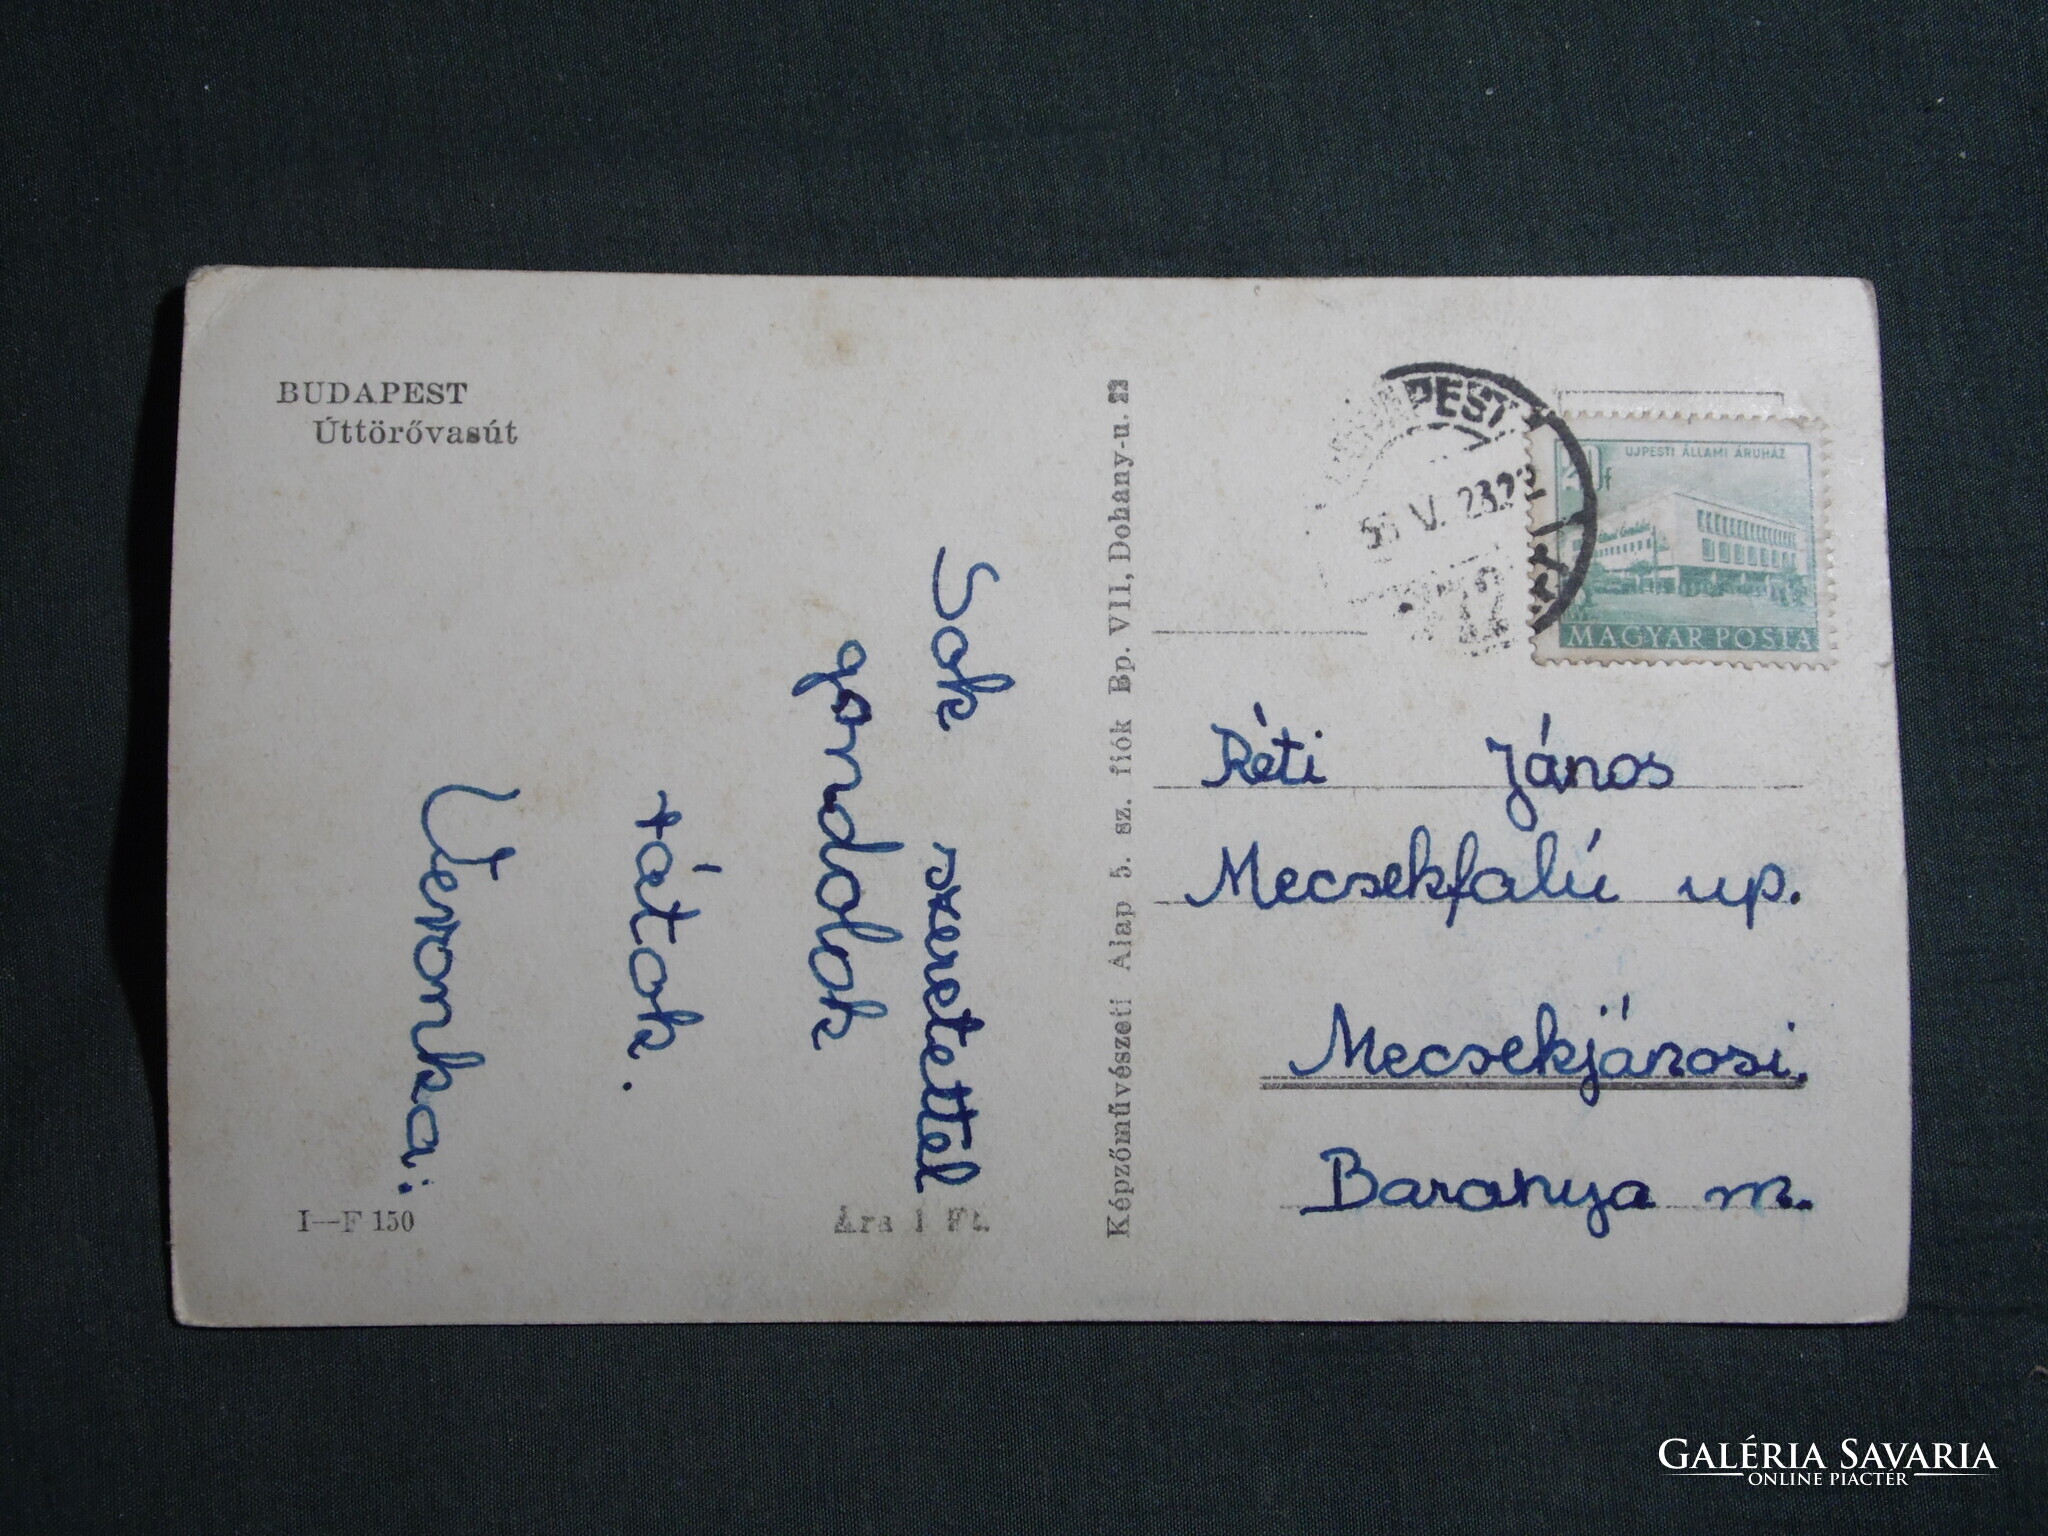 BUDAPEST
Úttörővasút
Sok szeretettel
gondolok
rátok.
Ilevonka:
I--F 150
Ára 1 Ft.
Képzőművészeti Alap 5. sz. fiók Bp. VII, Dohány-u. 22
BUDAPEST
V. 23 22
72
20f
UJPESTI ÁLLAMI ÁRUHÁZ
MAGYAR POSTA
Réti János
Mecsekfalú up.
Mecsekjánosi.
Baranya m.
GALÉRIA SAVARIA
ONLINE PIACTÉR